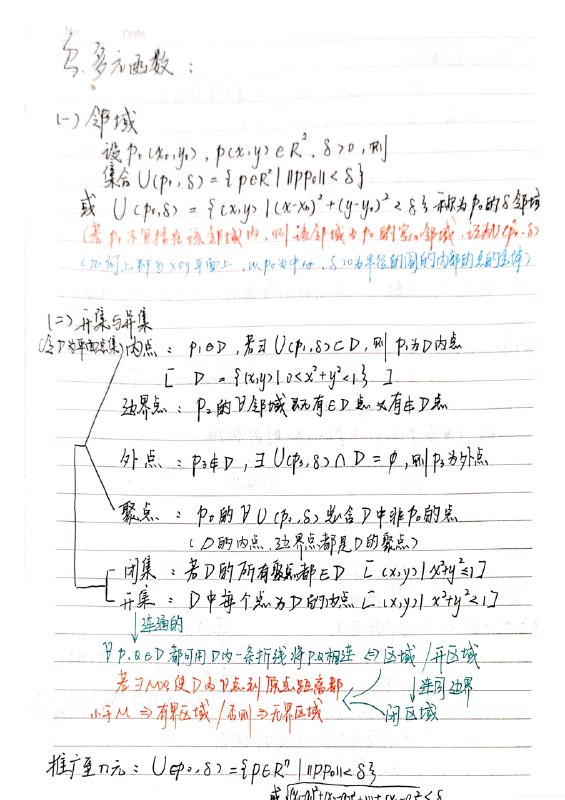 多元函数：
(一) 邻域
设 p₀(x₀,y₀), p(x,y)∈R², δ>0, 则
集合 U(p₀,δ)={p∈R² | ||pp₀||<δ}
或 U(p₀,δ)={(x,y) | (x-x₀)²+(y-y₀)²<δ} 称为p₀的δ邻域
(若p₀不包括在该邻域内, 则该邻域为p₀的空心邻域, 记为U(p₀,δ)
(几何上即为xoy平面上, 以p₀为中心, δ>0为半径的圆的内部的点的全体)
(二) 开集与异集
(令D为平面点集) 内点： p₁∈D, 若∃U(p₁,δ)⊂D, 则p₁为D内点
[ D={(x,y) | 0<x²+y²<1} ]
边界点： p₂的∀邻域既有∈D点又有∉D点
外点： p₃∉D, ∃U(p₃,δ)∩D=φ, 则p₃为外点
聚点： p₀的∀U(p₀,δ)总含D中非p₀的点
(D的内点、边界点都是D的聚点)
闭集：若D的所有聚点都∈D [(x,y) | x²+y²≤1]
开集： D中每个点为D的内点 [(x,y) | x²+y²<1]
↓连通的
∀P,Q∈D都可用D内一条折线将P.Q相连 ⇔ 区域/开区域
若∃M>0,使D内∀点到原点距离都 ↓连同边界
小于M ⇒有界区域/否则⇒无界区域 闭区域
推广至n元：U(p₀,δ)={p∈Rⁿ | ||pp₀||<δ}
或